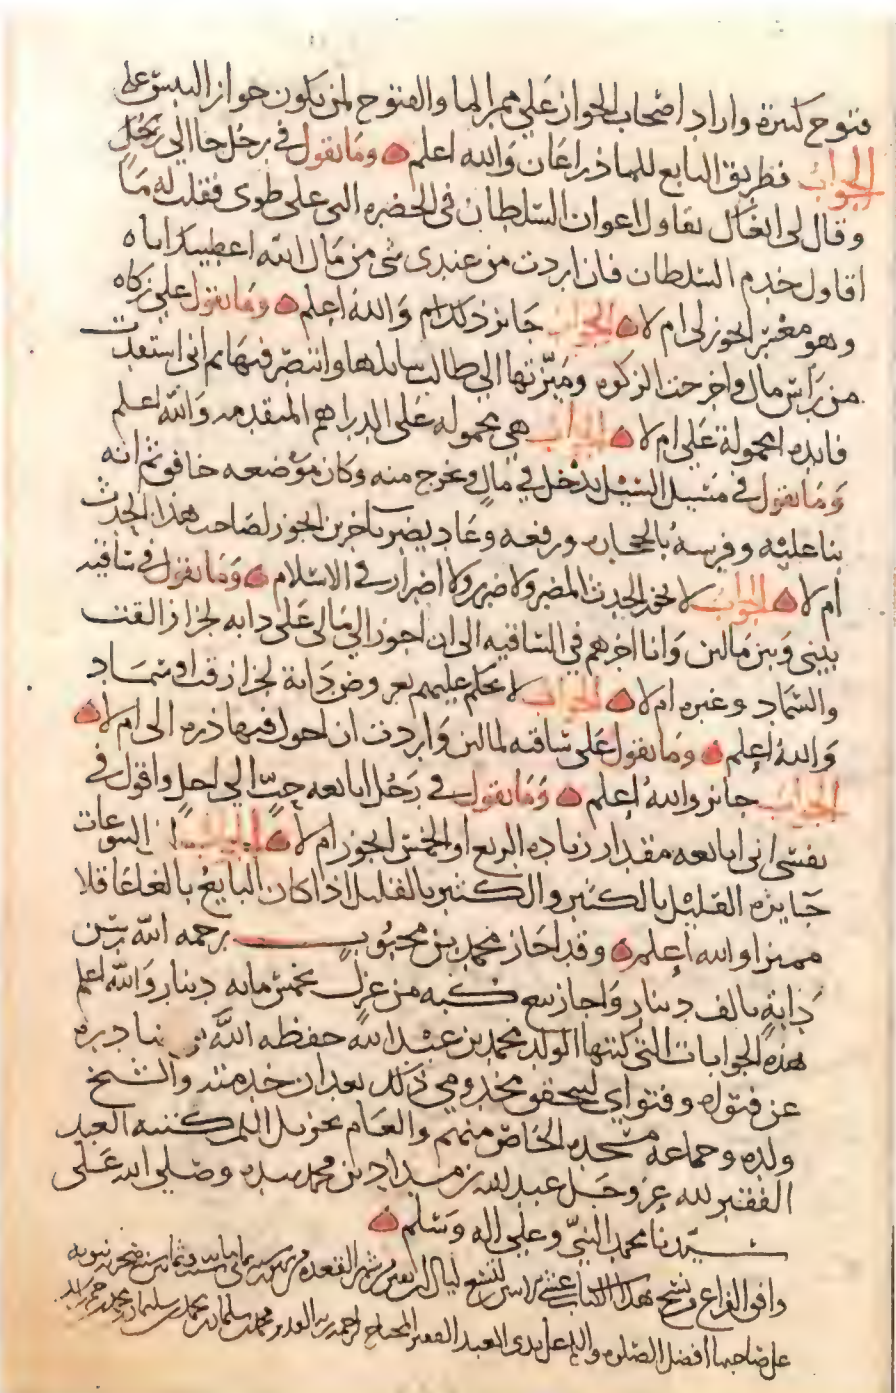 فتوح كثيرة واراد اصحاب الجواز على ممر الما والفتوح لمن يكون جواز اليبس على
الجواب فطريق التابع للما ذراعان والله اعلم وما تقول في رجل جا الى رجل
وقال لي تقاول اعوان السلطان في الخضره التي على طوى فقلت له ما
اقاول خدم السلطان فان اردت من عندى شي من مال الله اعطيتك اياه
وهو ايجوز لي ام لا الجواب جايز ذلك والله اعلم وما تقول على زكاه
من راس مال واخرجت الزكوه وميزتها الى طالب سايلها وانتصر فيها ثم اني استفدت
فايده امحمولة علي ام لا الجواب هي محموله على الدراهم المتقدمه والله اعلم
وما تقول في مسيل السيل يدخل في مال ويخرج منه وكان موضعه خافق ثم انه
بنا عليه وفرسه بالحجاره ورفعه وعاد يضر بآخرين ايجوز لصاحب هذا الحدث
ام لا الجواب لا يجوز الحدث المضر ولا ضرر ولا اضرار في الاسلام وما تقول في ساقيه
بيني وبين مالين وانا اخرهم في الساقيه الى ان اجوز الى مالى على دابه لجزاز القت
والسماد وغيره ام لا الجواب لا يحكم عليهم بعروض دابة لجزاز قت او سماد
والله اعلم وما تقول على ساقيه لمالين واردت ان احول فيها ذره الى ام لا
الجواب جايز والله اعلم وما تقول في رجل ابايعه حبّا الى اجل واقول في
نفسي اني ابايعه مقدار زياده الربع او الخمس ايجوز ام لا الجواب ان البيوعات
جايزه القليل بالكثير والكثير بالقليل اذا كان البايع بالغا عاقلا
مميزا والله اعلم وقد اجاز محمد بن محبوب رحمه الله رسن
دابة بالف دينار واجاز بيع كبه من غزل بخمس مايه دينار والله اعلم
هذه الجوابات التي كتبها الولد محمد بن عبد الله حفظه الله
عن فتوله وفتواي ليحقق مخدومي ذلك بعد ان خدمته والشيخ
ولده وجماعة مسجده الخاص منهم والعام بجزيل السلم كتبه العبد
الفقير لله عز وجل عبد الله بن مداد بن محمد بيده وصلى الله على
سيدنا محمد النبي وعلى اله وسلم
وافق الفراغ من نسخ هذا الكتاب لتسع ليال من شهر القعده من سنة نبويه
على صاحبها افضل الصلوه والسلم على يدى العبد الفقير المحتاج لرحمه ربه القدير محمد بن سليمان بن محمد بن سليمان